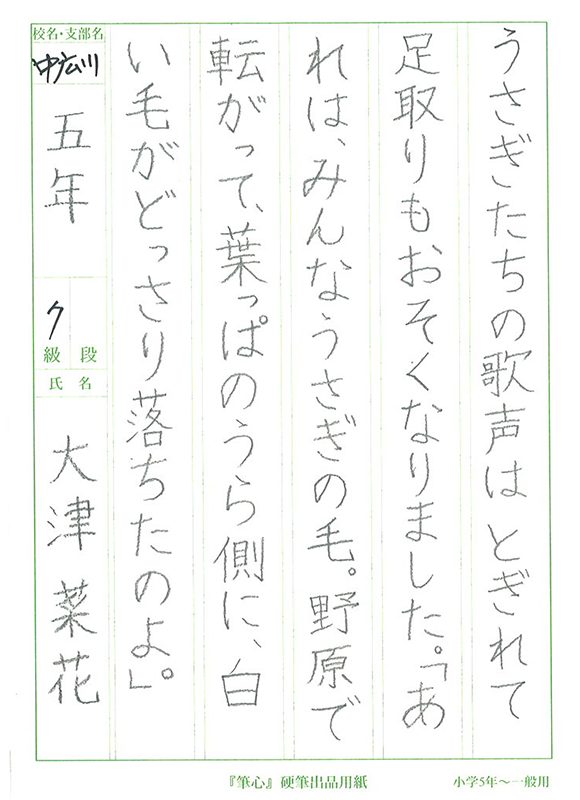 うさぎたちの歌声はとぎれて
足取りもおそくなりました。「あ
れは、みんなうさぎの毛。野原で
転がって、葉っぱのうら側に、白
い毛がどっさり落ちたのよ」。
校名・支部名
中広川
五年
7
級 段
氏名
大津菜花
『筆心』硬筆出品用紙
小学5年〜一般用